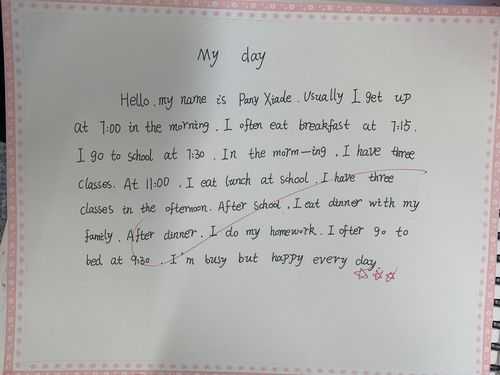 My day
Hello, my name is Pany Xiade. Usually I get up
at 7:00 in the morning. I often eat breakfast at 7:15.
I go to school at 7:30. In the morm-ing, I have three
classes. At 11:00, I eat lunch at school. I have three
classes in the ofternoon. After school, I eat dinner with my
family. After dinner, I do my homework. I ofter go to
bed at 9:30. I'm busy but happy every day